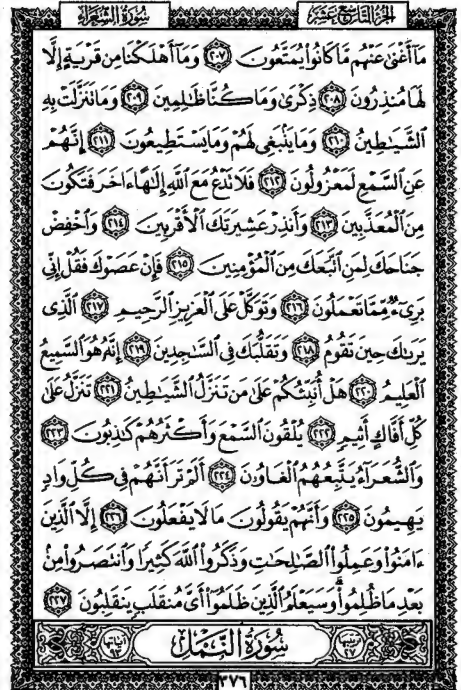 الجزء التاسع عشر
سورة الشعراء
مَآ أَغْنَىٰ عَنْهُم مَّا كَانُوا۟ يُمَتَّعُونَ ﴿٢٠٧﴾ وَمَآ أَهْلَكْنَا مِن قَرْيَةٍ إِلَّا
لَهَا مُنذِرُونَ ﴿٢٠٨﴾ ذِكْرَىٰ وَمَا كُنَّا ظَـٰلِمِينَ ﴿٢٠٩﴾ وَمَا تَنَزَّلَتْ بِهِ
ٱلشَّيَـٰطِينُ ﴿٢١٠﴾ وَمَا يَنۢبَغِى لَهُمْ وَمَا يَسْتَطِيعُونَ ﴿٢١١﴾ إِنَّهُمْ
عَنِ ٱلسَّمْعِ لَمَعْزُولُونَ ﴿٢١٢﴾ فَلَا تَدْعُ مَعَ ٱللَّهِ إِلَـٰهًا ءَاخَرَ فَتَكُونَ
مِنَ ٱلْمُعَذَّبِينَ ﴿٢١٣﴾ وَأَنذِرْ عَشِيرَتَكَ ٱلْأَقْرَبِينَ ﴿٢١٤﴾ وَٱخْفِضْ
جَنَاحَكَ لِمَنِ ٱتَّبَعَكَ مِنَ ٱلْمُؤْمِنِينَ ﴿٢١٥﴾ فَإِنْ عَصَوْكَ فَقُلْ إِنِّى
بَرِىٓءٌ مِّمَّا تَعْمَلُونَ ﴿٢١٦﴾ وَتَوَكَّلْ عَلَى ٱلْعَزِيزِ ٱلرَّحِيمِ ﴿٢١٧﴾ ٱلَّذِى
يَرَىٰكَ حِينَ تَقُومُ ﴿٢١٨﴾ وَتَقَلُّبَكَ فِى ٱلسَّـٰجِدِينَ ﴿٢١٩﴾ إِنَّهُۥ هُوَ ٱلسَّمِيعُ
ٱلْعَلِيمُ ﴿٢٢٠﴾ هَلْ أُنَبِّئُكُمْ عَلَىٰ مَن تَنَزَّلُ ٱلشَّيَـٰطِينُ ﴿٢٢١﴾ تَنَزَّلُ عَلَىٰ
كُلِّ أَفَّاكٍ أَثِيمٍ ﴿٢٢٢﴾ يُلْقُونَ ٱلسَّمْعَ وَأَكْثَرُهُمْ كَـٰذِبُونَ ﴿٢٢٣﴾
وَٱلشُّعَرَآءُ يَتَّبِعُهُمُ ٱلْغَاوُۥنَ ﴿٢٢٤﴾ أَلَمْ تَرَ أَنَّهُمْ فِى كُلِّ وَادٍ
يَهِيمُونَ ﴿٢٢٥﴾ وَأَنَّهُمْ يَقُولُونَ مَا لَا يَفْعَلُونَ ﴿٢٢٦﴾ إِلَّا ٱلَّذِينَ
ءَامَنُوا۟ وَعَمِلُوا۟ ٱلصَّـٰلِحَـٰتِ وَذَكَرُوا۟ ٱللَّهَ كَثِيرًا وَٱنتَصَرُوا۟ مِنۢ
بَعْدِ مَا ظُلِمُوا۟ ۗ وَسَيَعْلَمُ ٱلَّذِينَ ظَلَمُوٓا۟ أَىَّ مُنقَلَبٍ يَنقَلِبُونَ ﴿٢٢٧﴾
سُورَةُ النَّمْلِ
٣٧٦